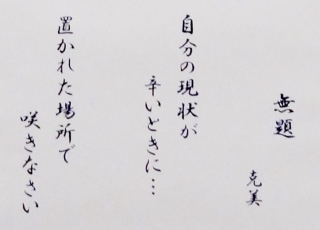 無題
克美
自分の現状が
辛いときに…
置かれた場所で
咲きなさい